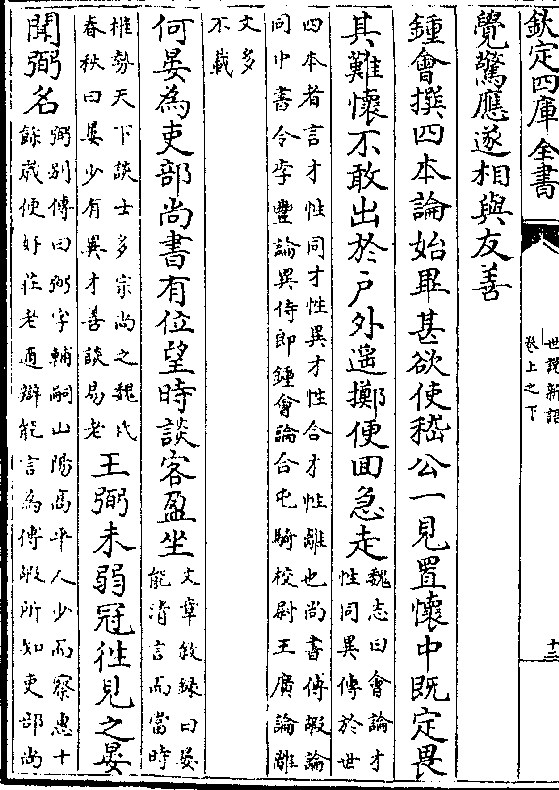 欽定四庫全書
世說新語
卷上之下
十三
覺驚應遂相與友善
鍾會撰四本論始畢甚欲使嵇公一見置懷中既定畏
其難懷不敢出於戶外遥擲便回急走
魏志曰會論才
性同異傳於世
四本者言才性同才性異才性合才性離也尚書傅嘏論
同中書令李豐論異侍郎鍾會論合屯騎校尉王廣論離
文多
不載
何晏為吏部尚書有位望時談客盈坐
文章敘録曰晏
能清言而當時
權勢天下談士多宗尚之魏氏
春秋曰晏少有異才善談易老
王弼未弱冠往見之晏
聞弼名
弼别傳曰弼字輔嗣山陽高平人少而察惠十
餘歲便好莊老通辯能言為傅嘏所知吏部尚